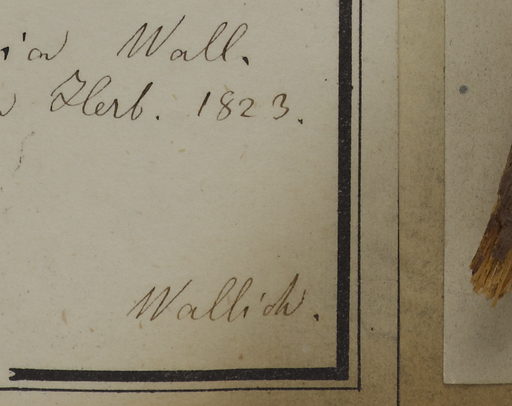 Wall.
Herb. 1823.
Wallich.